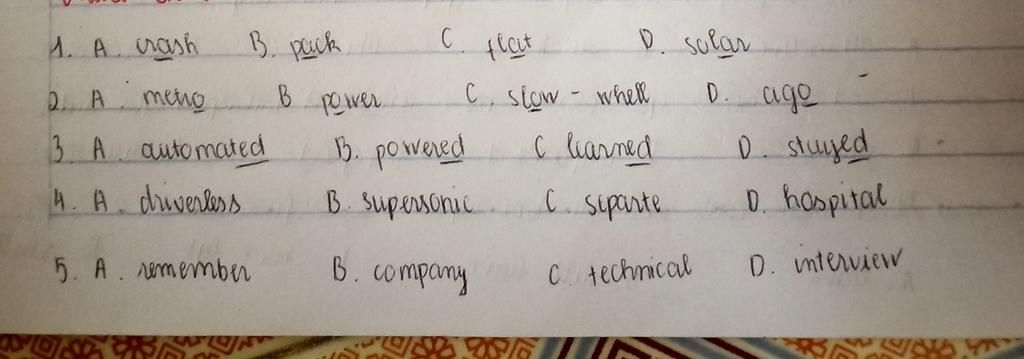 1. A. crash B. pack C. flat D. solar
2. A. metro B power C. slow - whell D. ago
3. A. automated B. powered C learned D. stayed
4. A. driverless B. supersonic C. separte D. hospital
5. A. remember B. company C technical D. interview